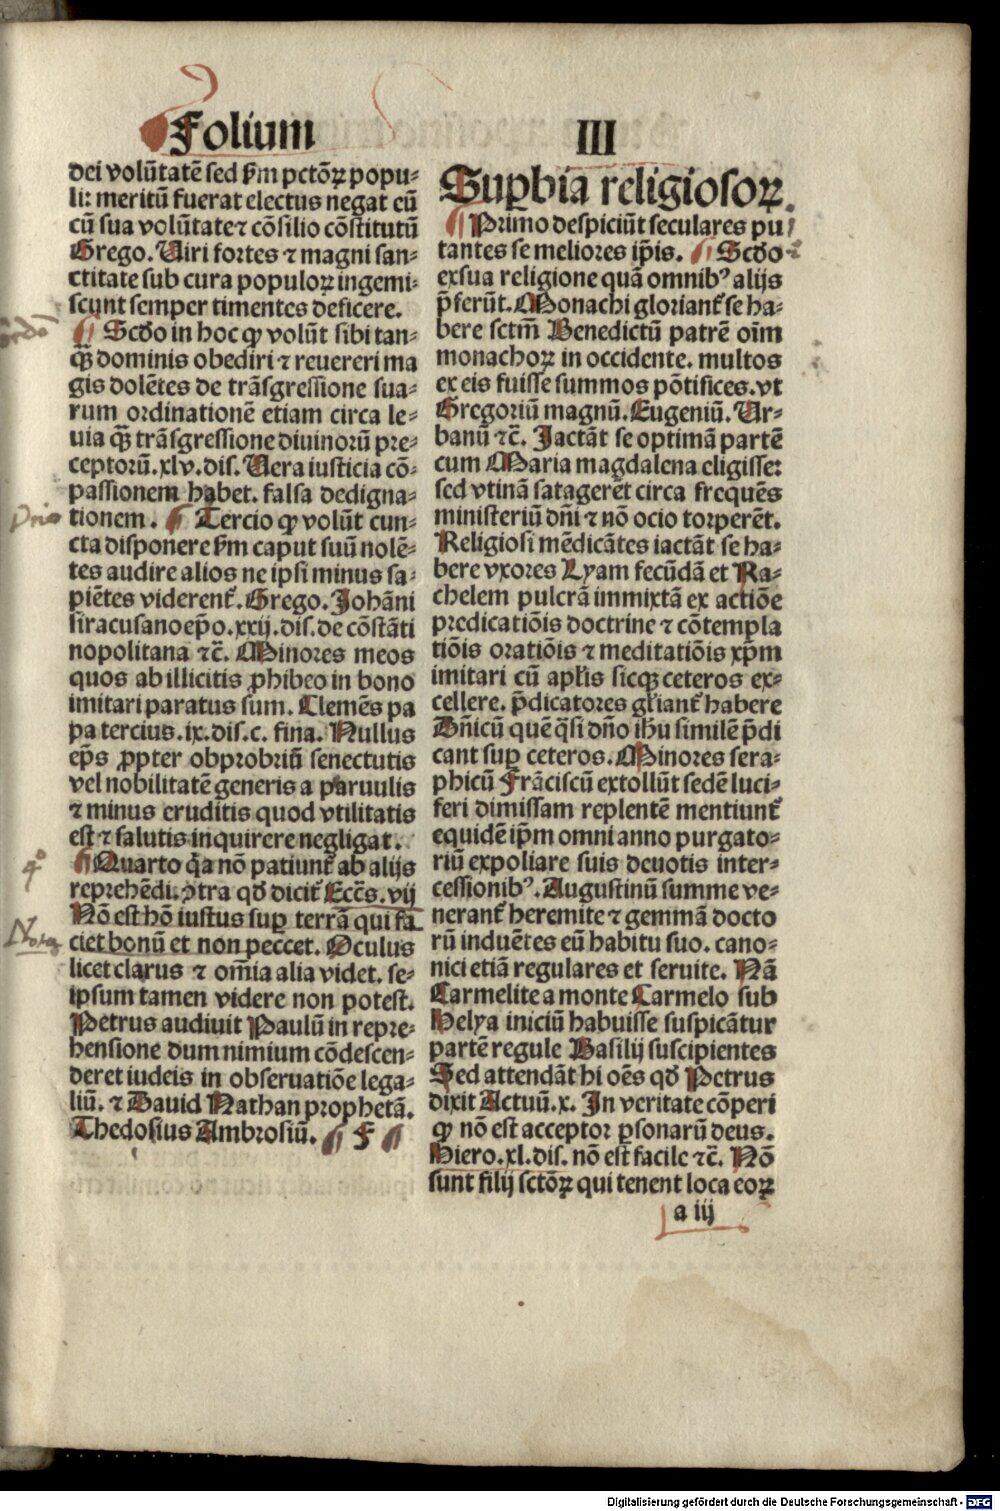 Folium III
dei volūtatē sed ẜm pctōꝝ popu⸗
li: meritū fuerat electus negat eū
cū sua volūtate ⁊ cōsilio cōstitutū
Grego. Uiri fortes ⁊ magni san⸗
ctitate sub cura populoꝝ ingemi⸗
scunt semper timentes deficere.
¶ Scd̄o in hoc ꝙ volūt sibi tan⸗
ꝙ̄ dominis obediri ⁊ reuereri ma
gis dolētes de trāsgressione sua⸗
rum ordinationē etiam circa le⸗
uia ꝙ̄ trāsgressione diuinorū pre⸗
ceptorū. xlv. dis. Uera iusticia cō⸗
passionem habet. falsa dedigna⸗
tionem. ¶ Tercio ꝙ volūt cun⸗
cta disponere ẜm caput suū nolē⸗
tes audire alios ne ipsi minus sa⸗
piētes viderent᷑. Grego. Johāni
siracusano ep̄o. xxij. dis. de cōstāti
nopolitana ⁊c̄. Minores meos
quos ab illicitis ꝓhibeo in bono
imitari paratus sum. Clemēs pa
pa tercius. ix. dis. c. fina. Nullus
ep̄s ꝓpter obprobriū senectutis
vel nobilitatē generis a paruulis
⁊ minus eruditis quod vtilitatis
est ⁊ salutis inquirere negligat.
¶ Quarto q̄a nō patiunt᷑ ab alijs
reprehēdi. ↄtra qd̄ dicit᷑ Ecc̄s. vij
Nō est hō iustus suꝑ terrā qui fa
ciet bonū et non peccet. Oculus
licet clarus ⁊ om̄ia alia videt. se⸗
ipsum tamen videre non potest.
Petrus audiuit Paulū in repre⸗
hensione dum nimium cōdescen⸗
deret iudeis in obseruatiōe lega⸗
liū. ⁊ Dauid Nathan prophetā.
Thedosius Ambrosiū. ¶ F ¶
Suꝑbia religiosoꝝ.
¶ Primo despiciūt seculares pu
tantes se meliores ip̄is. ¶ Scd̄o
ex sua religione quā omnibꝰ alijs
p̄ferūt. Monachi gloriant᷑ se ha⸗
bere sctm̄ Benedictū patrē oīm
monachoꝝ in occidente. multos
ex eis fuisse summos pōtifices. vt
Gregoriū magnū. Eugeniū. Ur⸗
banū ⁊c̄. Jactāt se optimā partē
cum Maria magdalena eligisse:
sed vtinā satagerēt circa frequēs
ministeriū dn̄i ⁊ nō ocio torperēt.
Religiosi mēdicātes iactāt se ha⸗
bere vxores Lyam fecūdā et Ra⸗
chelem pulcrā immixtā ex actiōe
predicatiōis doctrine ⁊ cōtempla
tiōis oratiōis ⁊ meditatiōis xp̄m
imitari cū apl̄is sicqꝫ ceteros ex⸗
cellere. p̄dicatores gl̄iant᷑ habere
Dn̄icū quē q̄si dn̄o ih̄u similē p̄di
cant suꝑ ceteros. Minores sera⸗
phicū Frāciscū extollūt sedē luci⸗
feri dimissam replentē mentiunt᷑
equidē ip̄m omni anno purgato⸗
riū expoliare suis deuotis inter⸗
cessionibꝰ. Augustinū summe ve⸗
nerant᷑ heremite ⁊ gemmā docto
rū induētes eū habitu suo. cano⸗
nici etiā regulares et seruite. Nā
Carmelite a monte Carmelo sub
Helya iniciū habuisse suspicātur
partē regule Basilij suscipientes
Sed attendāt hi oēs qd̄ Petrus
dixit Actuū. x. In veritate cōperi
ꝙ nō est acceptor ꝑsonarū deus.
Hiero. xl. dis. nō est facile ⁊c̄. Nō
sunt filij sctōꝝ qui tenent loca eoꝝ
a iij
4°
Nota
Digitalisierung gefördert durch die Deutsche Forschungsgemeinschaft - DFG